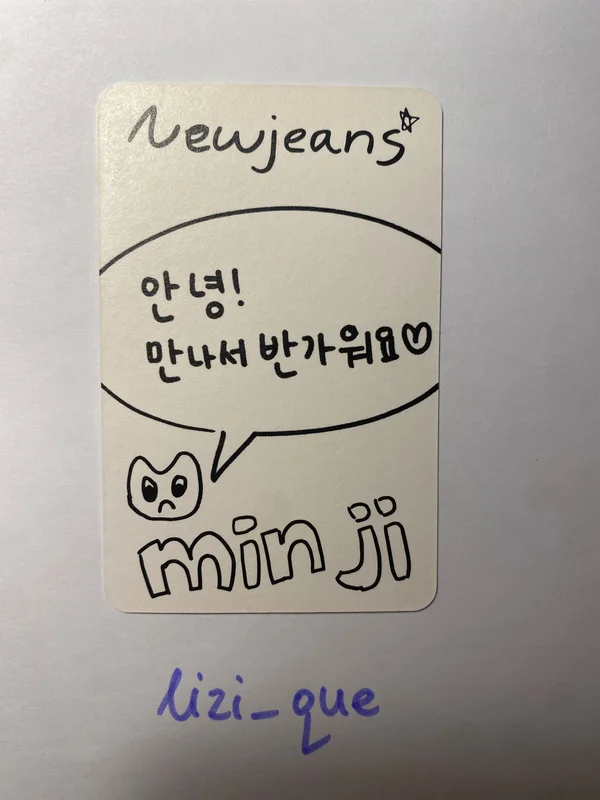 Newjeans
안녕!
만나서 반가워요♡
minji
lizi_que